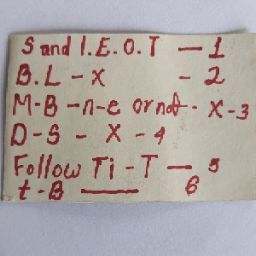 S and I.E.O.T — 1
B.L - x - 2
M-B -n-e or not - x-3
D-S - X - 4
Follow Ti - T — 5
t-B —— 6